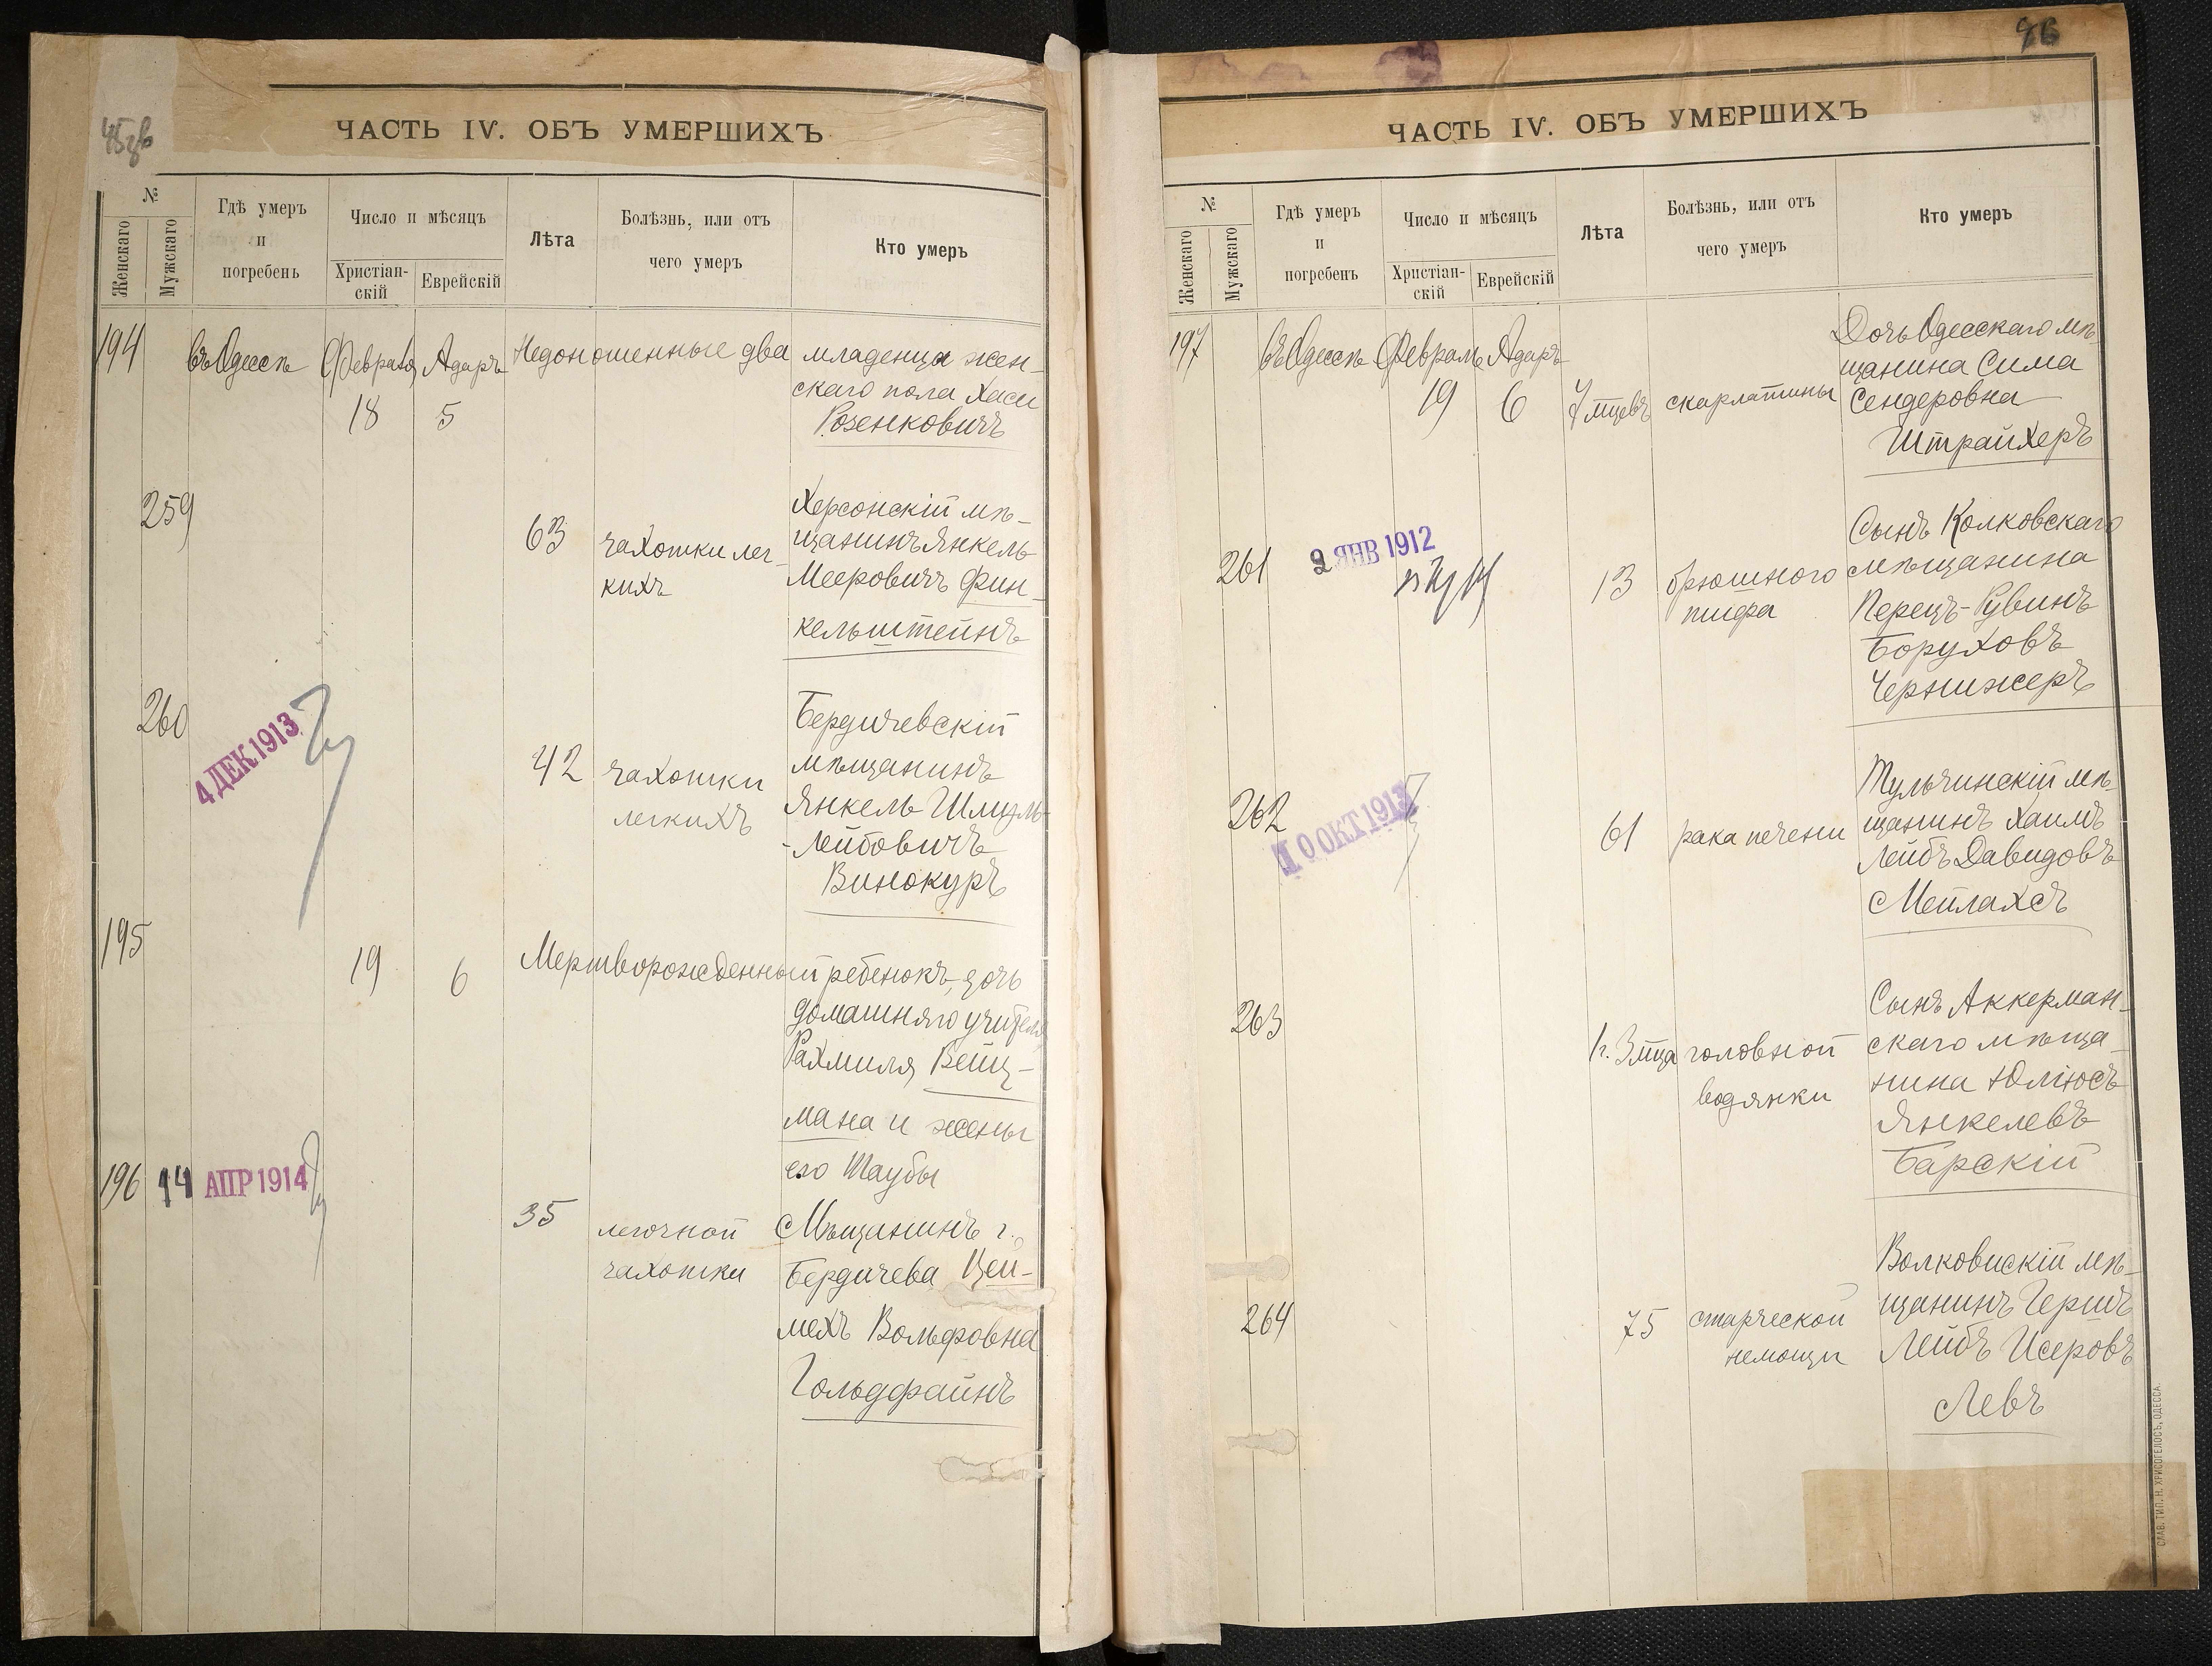 ЧАСТЬ IV. ОБЪ УМЕРШИХЪ
№
Женскаго
Мужскаго
Гдѣ умеръ
и
погребенъ
Число и мѣсяцъ
Христіан-
скій
Еврейскій
Лѣта
Болѣзнь, или отъ
чего умеръ
Кто умеръ
194 въ Одессѣ Февраля Адаръ Недоношенные два младенца жен-
18 5 скаго пола Хаси
Розенковичъ
259
63 чахотки лег-
кихъ
Херсонскій мѣ-
щанинъ Янкель
Мееровичъ Фин-
кельштейнъ
260
4 ДЕК 1913
42 чахотки
легкихъ
Бердичевскій
мѣщанинъ
Янкель Шмуль-
-Лейбовичъ
Винокуръ
195
19 6 Мертворожденный ребенокъ, дочь
домашняго учителя
Рахмиля Вейц-
мана и жены
его Таубы
196 14 АПР 1914
35 легочной
чахотки
Мѣщанинъ г.
Бердичева Цей-
мехъ Вольфовна
Гольдфайнъ
ЧАСТЬ IV. ОБЪ УМЕРШИХЪ
№
Женскаго
Мужскаго
Гдѣ умеръ
и
погребенъ
Число и мѣсяцъ
Христіан-
скій
Еврейскій
Лѣта
Болѣзнь, или отъ
чего умеръ
Кто умеръ
197 въ Одессѣ Февраль Адаръ
19 6 7 мцевъ скарлатины
Дочь Одесскаго мѣ-
щанина Сима
Сендеровна
Штрайхеръ
261
2 ЯНВ 1912
13 брюшного
тифа
Сынъ Колковскаго
мѣщанина
Перецъ-Рувинъ
Боруховъ
Чернижеръ
262
10 ОКТ 1913
61 рака печени
Тульчинскій мѣ-
щанинъ Хаимъ
Лейбъ Давидовъ
Мейлахсъ
263
1 г. 3 мца головной
водянки
Сынъ Аккерман-
скаго мѣща-
нина Юліюсъ
Янкелевъ
Барскій
264
75 старческой
немощи
Волковискій мѣ-
щанинъ Гершъ
Лейбъ Исеровъ
Левъ
СЛАВ. ТИП. Н. ХРИСОГЕЛОСЪ, ОДЕССА.